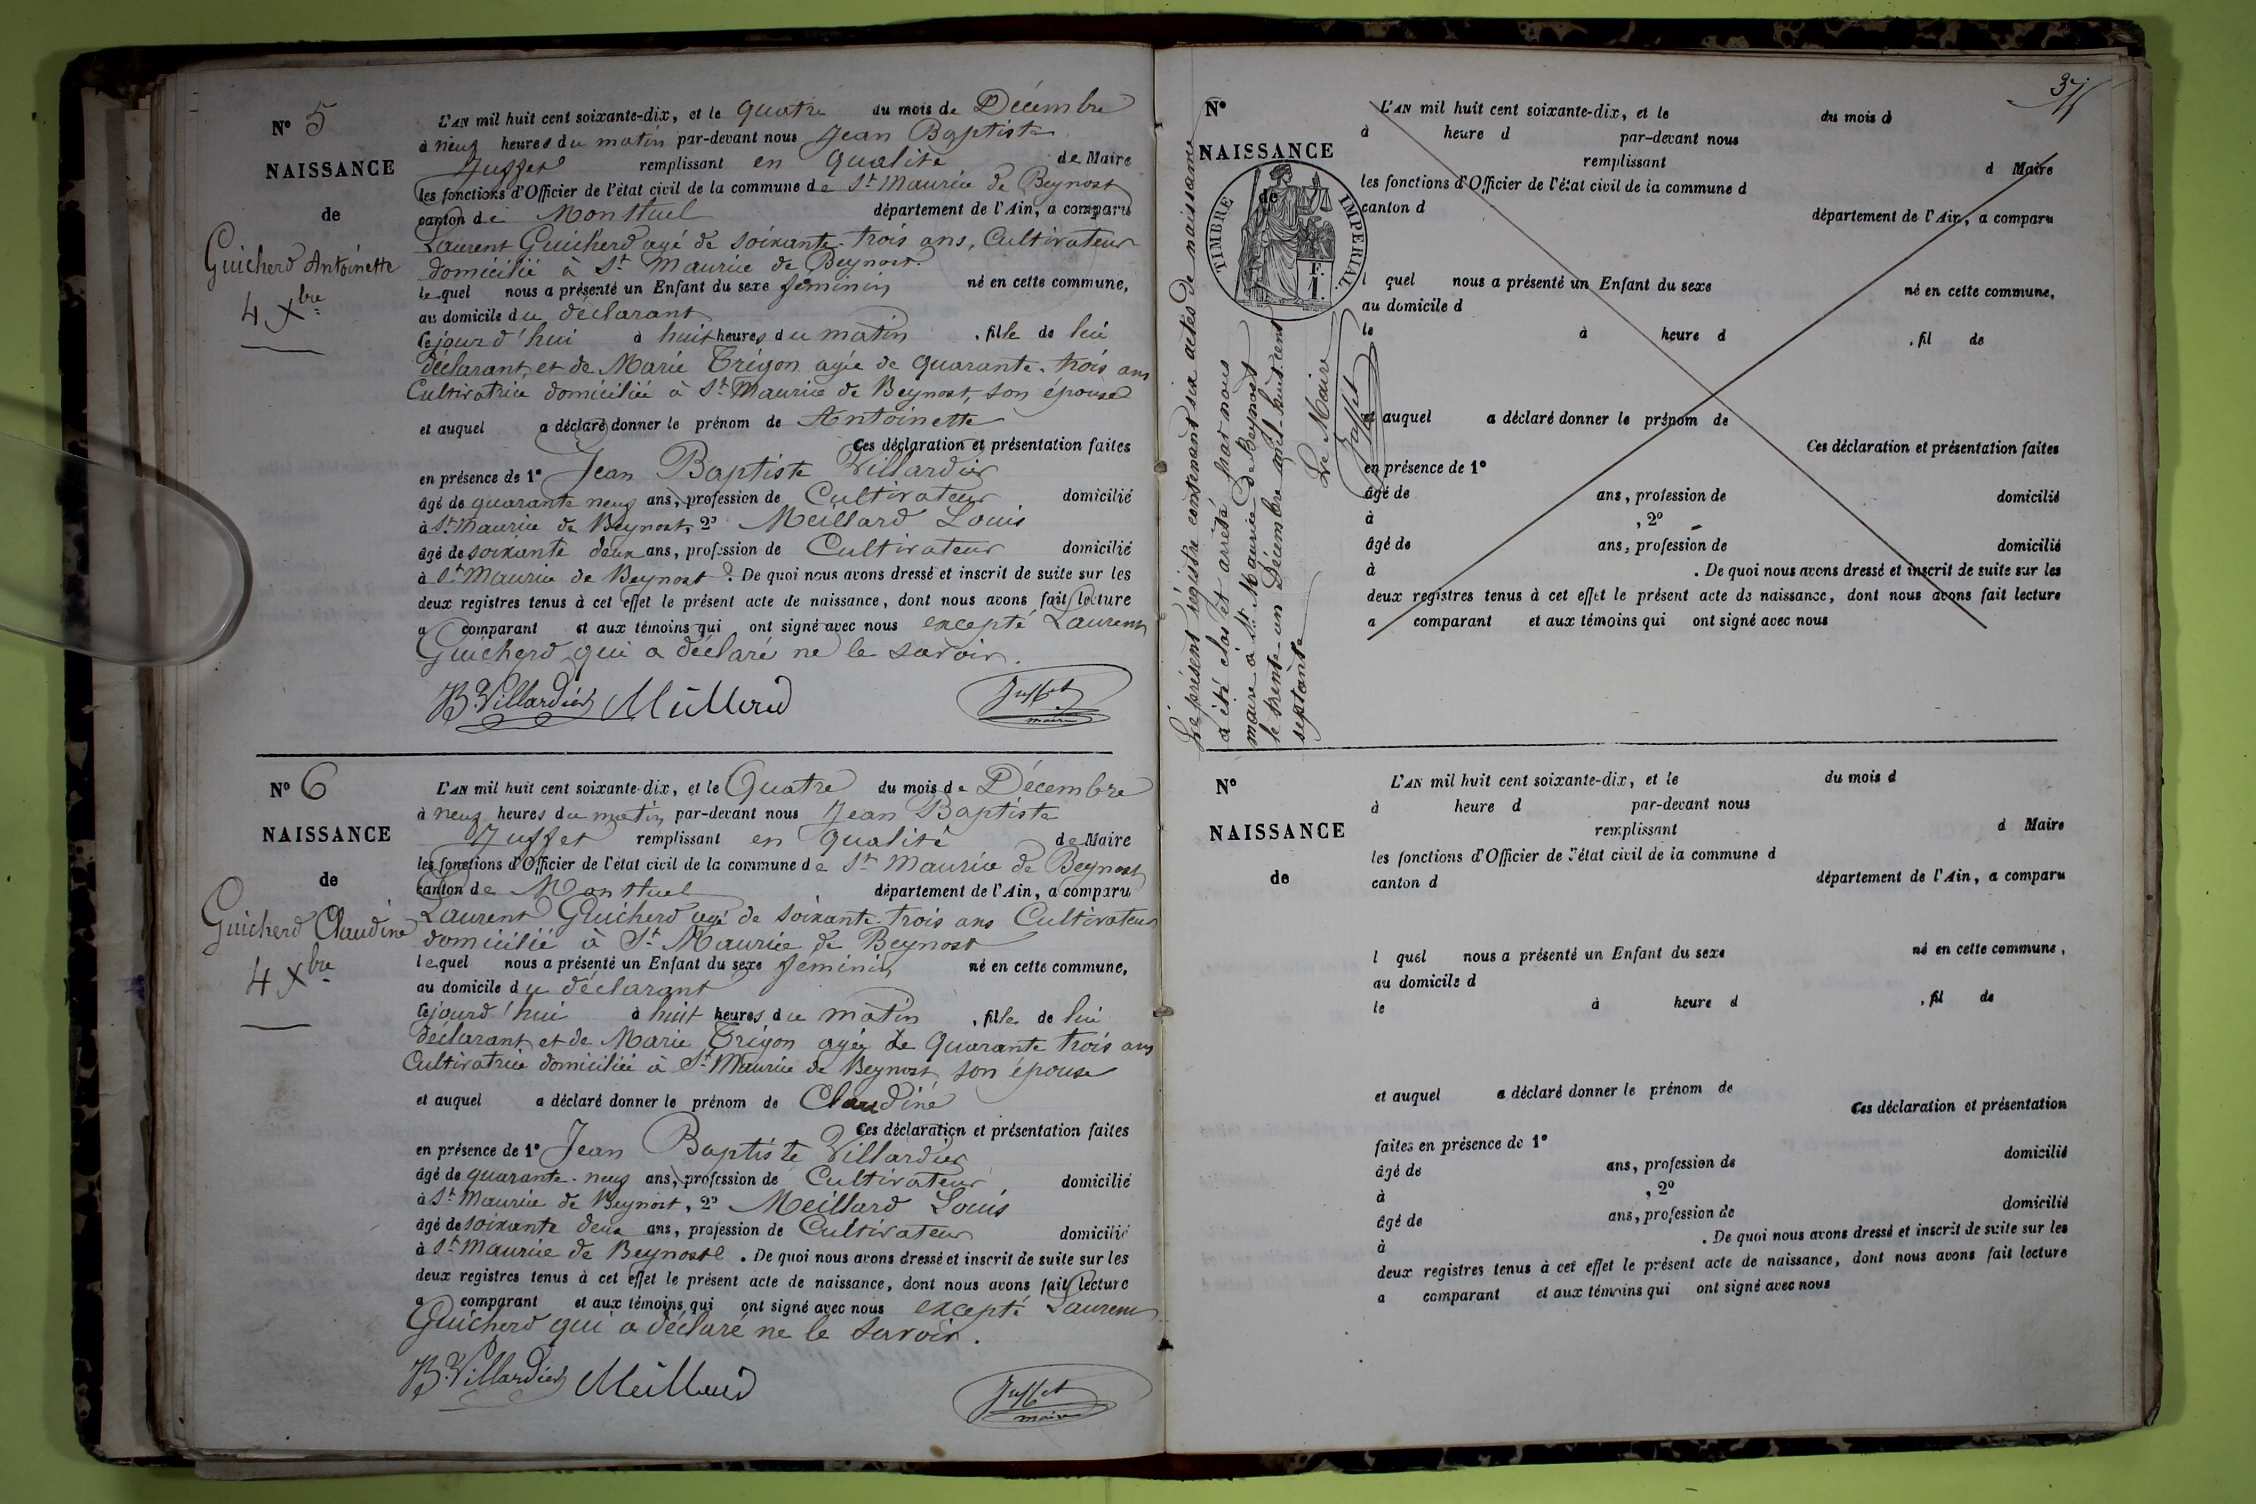 N° 5
NAISSANCE
de
Guicherd Antoinette
4 Xbre
L'AN mil huit cent soixante-dix, et le quatre du mois de Décembre
à neuf heures du matin par-devant nous Jean Baptiste
Juffet remplissant en qualité de Maire
les fonctions d'Officier de l'état civil de la commune de St Maurice de Beynost
canton de Montluel département de l'Ain, a comparu
Laurent Guicherd agé de soixante-trois ans, Cultivateur
domicilié à St Maurice de Beynost
lequel nous a présenté un Enfant du sexe féminin né en cette commune,
au domicile du déclarant
cejourd'hui à huit heures du matin , fille de lui
déclarant, et de Marie Trigon agée de quarante-trois ans
Cultivatrice domiciliée à St Maurice de Beynost, son épouse
et auquel a déclaré donner le prénom de Antoinette
Ces déclaration et présentation faites
en présence de 1° Jean Baptiste Villardier
âgé de quarante neuf ans, profession de Cultivateur domicilié
à St Maurice de Beynost, 2° Meillard Louis
âgé de soixante deux ans, profession de Cultivateur domicilié
à St Maurice de Beynost. De quoi nous avons dressé et inscrit de suite sur les
deux registres tenus à cet effet le présent acte de naissance, dont nous avons fait lecture
a comparant et aux témoins qui ont signé avec nous excepté Laurent
Guicherd qui a déclaré ne le savoir.
JB Villardier Meillard Juffet
maire
N° 6
NAISSANCE
de
Guicherd Claudine
4 Xbre
L'AN mil huit cent soixante-dix, et le Quatre du mois de Décembre
à neuf heures du matin par-devant nous Jean Baptiste
Juffet remplissant en qualité de Maire
les fonctions d'Officier de l'état civil de la commune de St Maurice de Beynost
canton de Montluel département de l'Ain, a comparu
Laurent Guicherd agé de soixante-trois ans Cultivateur
domicilié à St Maurice de Beynost
lequel nous a présenté un Enfant du sexe féminin né en cette commune,
au domicile du déclarant
cejourd'hui à huit heures du matin , fille de lui
déclarant, et de Marie Trigon agée de quarante trois ans
Cultivatrice domiciliée à St Maurice de Beynost son épouse
et auquel a déclaré donner le prénom de Claudine
Ces déclaration et présentation faites
en présence de 1° Jean Baptiste Villardier
âgé de quarante-neuf ans, profession de Cultivateur domicilié
à St Maurice de Beynost, 2° Meillard Louis
âgé de soixante deux ans, profession de Cultivateur domicilié
à St Maurice de Beynost. De quoi nous avons dressé et inscrit de suite sur les
deux registres tenus à cet effet le présent acte de naissance, dont nous avons fait lecture
a comparant et aux témoins qui ont signé avec nous excepté Laurent
Guicherd qui a déclaré ne le savoir.
JB Villardier Meillard Juffet
maire
37
N°
NAISSANCE
de
TIMBRE IMPERIAL
F.
1.
Le présent registre contenant six actes de naissance
a été clos et arrêté par nous
maire à St Maurice de Beynost
le trente-un Décembre mil-huit-cent
septante
Le Maire
Juffet
L'AN mil huit cent soixante-dix, et le du mois d
à heure d par-devant nous
remplissant d Maire
les fonctions d'Officier de l'état civil de la commune d
canton d département de l'Ain, a comparu
l quel nous a présenté un Enfant du sexe né en cette commune,
au domicile d
le à heure d , fil de
et auquel a déclaré donner le prénom de
Ces déclaration et présentation faites
en présence de 1°
âgé de ans, profession de domicilié
à , 2°
âgé de ans, profession de domicilié
à . De quoi nous avons dressé et inscrit de suite sur les
deux registres tenus à cet effet le présent acte de naissance, dont nous avons fait lecture
a comparant et aux témoins qui ont signé avec nous
N°
NAISSANCE
de
L'AN mil huit cent soixante-dix, et le du mois d
à heure d par-devant nous
remplissant d Maire
les fonctions d'Officier de l'état civil de la commune d
canton d département de l'Ain, a comparu
l quel nous a présenté un Enfant du sexe né en cette commune,
au domicile d
le à heure d , fil de
et auquel a déclaré donner le prénom de
Ces déclaration et présentation
faites en présence de 1°
âgé de ans, profession de domicilié
à , 2°
âgé de ans, profession de domicilié
à . De quoi nous avons dressé et inscrit de suite sur les
deux registres tenus à cet effet le présent acte de naissance, dont nous avons fait lecture
a comparant et aux témoins qui ont signé avec nous